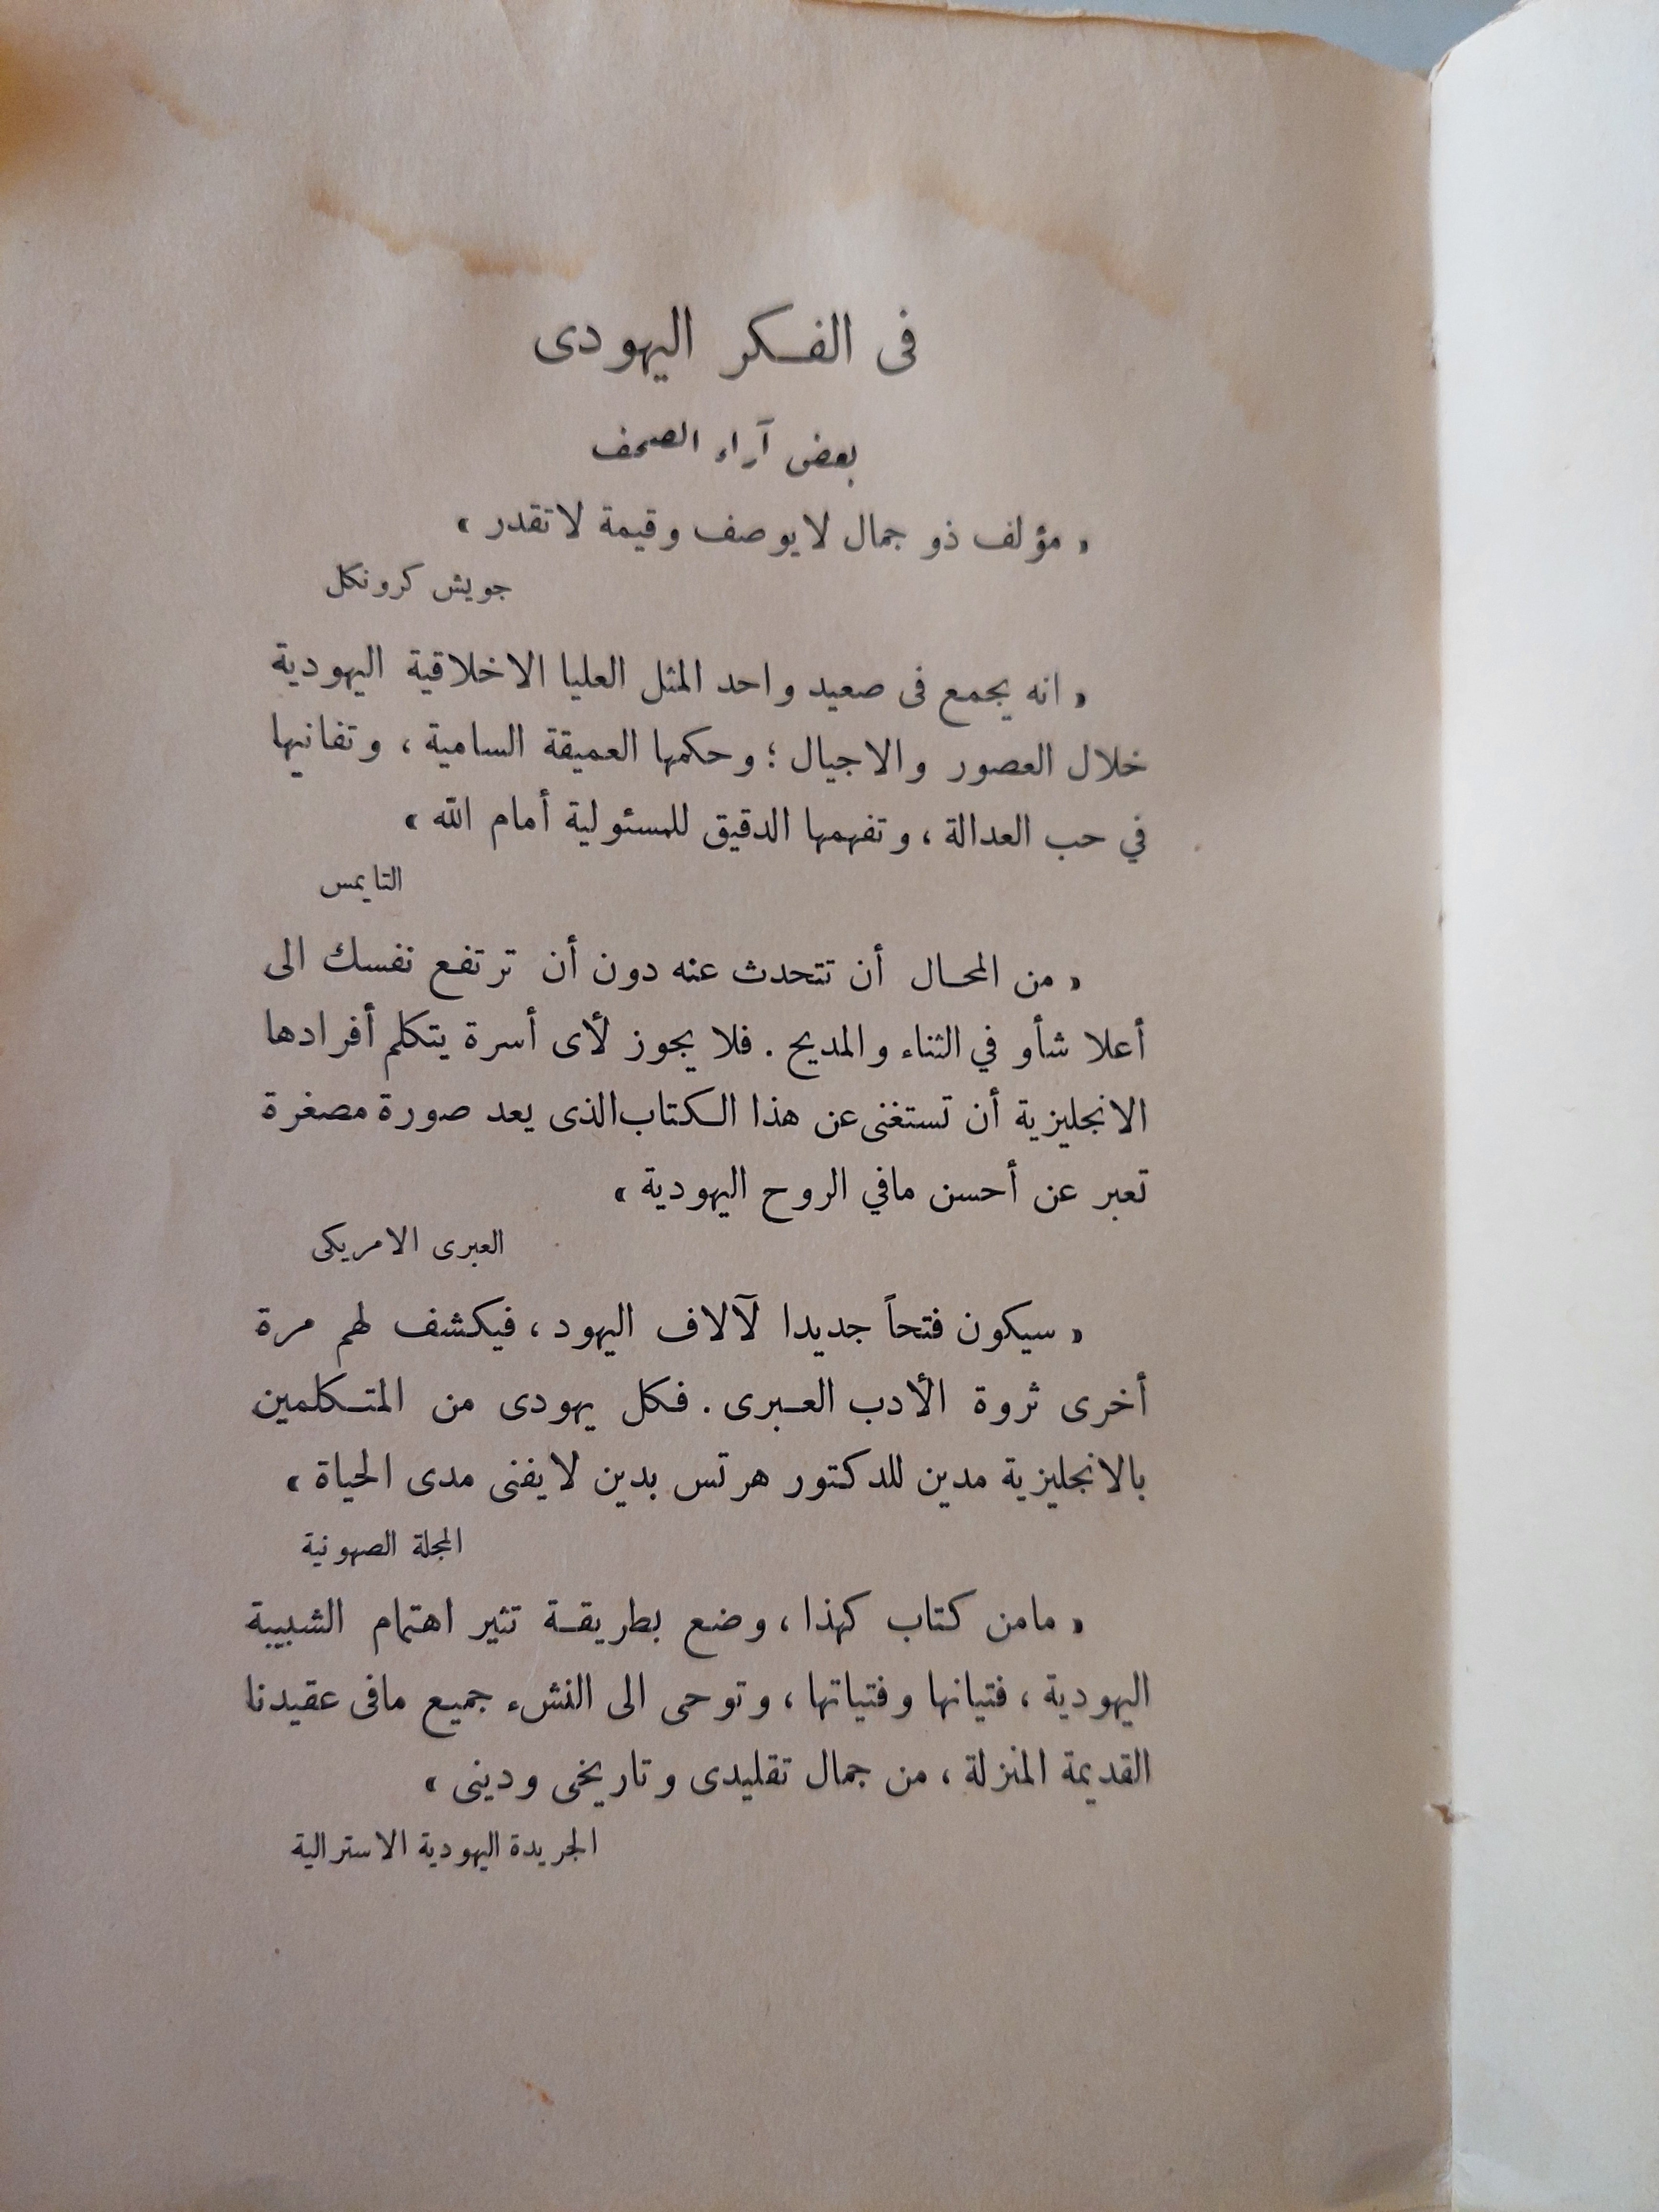 فى الفـكر اليهودى
بعض آراء الصحف
« مؤلف ذو جمال لايوصف وقيمة لاتقدر »
جويش كرونكل
« انه يجمع فى صعيد واحد المثل العليا الاخلاقية اليهودية
خلال العصور والاجيال ؛ وحكمها العميقة السامية ، وتفانيها
في حب العدالة ، وتفهمها الدقيق للمسئولية أمام الله »
التايمس
« من المحـال أن تتحدث عنه دون أن ترتفع نفسك الى
أعلا شأو في الثناء والمديح . فلا يجوز لأى أسرة يتكلم أفرادها
الانجليزية أن تستغنى عن هذا الـكتاب الذى يعد صورة مصغرة
تعبر عن أحسن مافي الروح اليهودية »
العبرى الامريكى
« سيكون فتحاً جديدا لآلاف اليهود ، فيكشف لهم مرة
أخرى ثروة الأدب العـبرى . فكل يهودى من المتـكلمين
بالانجليزية مدين للدكتور هرتس بدين لايفنى مدى الحياة »
المجلة الصهونية
« مامن كتاب كهذا ، وضع بطريقـة تثير اهتمام الشبيبة
اليهودية ، فتيانها وفتياتها ، وتوحى الى النشء جميع مافى عقيدنا
القديمة المنزلة ، من جمال تقليدى وتاريخى ودينى »
الجريدة اليهودية الاسترالية